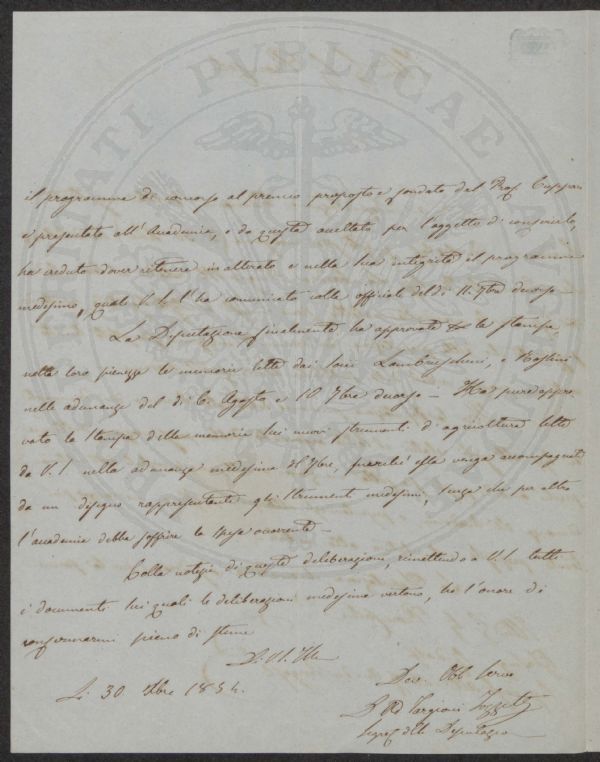 il programma di concorso al premio proposto e fondato dal Prof Cuppari
e presentato all'Accademia, e da questa accettato per l'oggetto di conferirlo,
ha creduto dover ritenere inalterato e nella sua integrità il programma
medesimo, qual V. S. l'ha comunicato colle officiale del dì 11. 9bre decorso
La Deputazione finalmente ha approvato la stampa
nella loro pienezza le memorie lette dai Soci Lambruschini, e
nelle adunanze del dì 6. Agosto e 10 7bre decorso — Ha pure appro
vato la stampa della memoria sui nuovi strumenti d'agricoltura letta
da V. S. nella adunanza medesima 7bre, purché essa venga accompagnata
da un disegno rappresentante gli strumenti medesimi, senza che per altro
l'accademia debba soffrire la spesa occorrente —
Colla notizia di queste deliberazioni, rimettendo a V. S. tutti
i documenti sui quali le deliberazioni medesime vertono, ho l'onore di
confermarmi pieno di stima
Di V. S. Ill
Li 30. Xbre 1854.
Dev. Obb Servo
Targioni Tozzetti
Segret della Deputazio